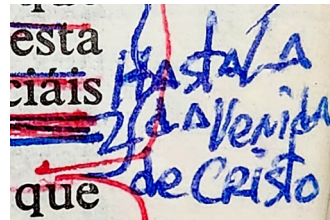 esta
ciáis
que
Hasta LA
2da Venida
de Cristo